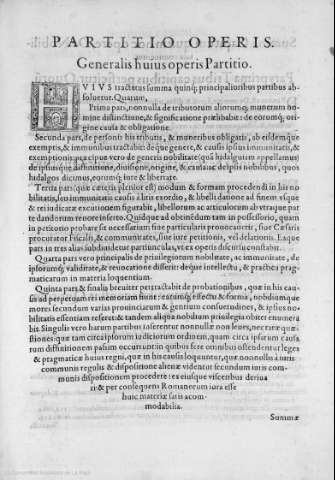 PARTITIO OPERIS.
Generalis huius operis Partitio.
HVIVS tractatus summa quinq; principalioribus partibus ab-
soluetur. Quarum,
Prima pars, nonnulla de tributorum aliorumq; munerum no-
mine distinctione, & significatione prælibabit: de eorumq; ori-
gine causa & obligatione.
Secunda pars, de personis his tributis, & muneribus obligatis, ab eisdemque
exemptis, & immunibus tractabit: deque genere, & causis ipsius immunitatis, &
exemptionis: præcipuè vero de generis nobilitate (quā hidalguiam appellamus)
de ipsiusque distinctione, diuisione, origine, & causa: ac de ipsis nobilibus, quos
hidalgos dicimus, eorumq; iure & libertate.
Tertia pars (quæ cæteris plenior est) modum & formam procedendi in his no-
bilitatis, seu immunitatis causis à litis exordio, & libelli datione ad finem vsque
& rei iudicatæ executionem figurabit, libellorum ac articulorum ab vtraque par
te dandorum tenore inserto. Quidque ad obtinēdum tam in possessorio, quam
in petitorio probare sit necessarium siue particularis prouocauerit, siue Cæsaris
procurator Fiscalis, & communitatis, siue iure petitionis, vel delationis. Eaque
pars in tres alias subdiuidetur partiunculas, vt ex operis discursu constabit.
Quarta pars vero principalis de priuilegiorum nobilitatis, ac immunitatis, de
ipsorumq; validitate, & reuocatione disserit: deque intellectu, & practica prag-
maticarum in materia loquentium.
Quinta pars & finalis breuiter pertractabit de probationibus, quæ in his cau-
sis ad perpetuam rei memoriam fiunt: earumq; effectu & forma, nobodiumque
mores secundum varias prouinciarum & gentium consuetudines, & ipsis no-
bilitatis essentiam refert: & tandem aliqua nobilium priuilegia obiter enumera
bit. Singulis vero harum partibus inserentur nonnullæ non leues, nec raræ quæ-
stiones: quæ tam circa ipsum iudiciorum ordinem, quam circa ipsarum causa-
rum dissuitionem passim occurrunt: in quibus fere omnibus ostendetur leges
& pragmaticas huius regni, quæ in his causis loquuntur, quæ non nollis à iuris
communis regulis & dispositione alienæ videntur secundum iuris com-
munis dispositionem procedere: ex eiusque visceribus deriua
ri: & per consequens Romanorum iura esse
huic materiæ satis acom-
modabilia.
Summæ